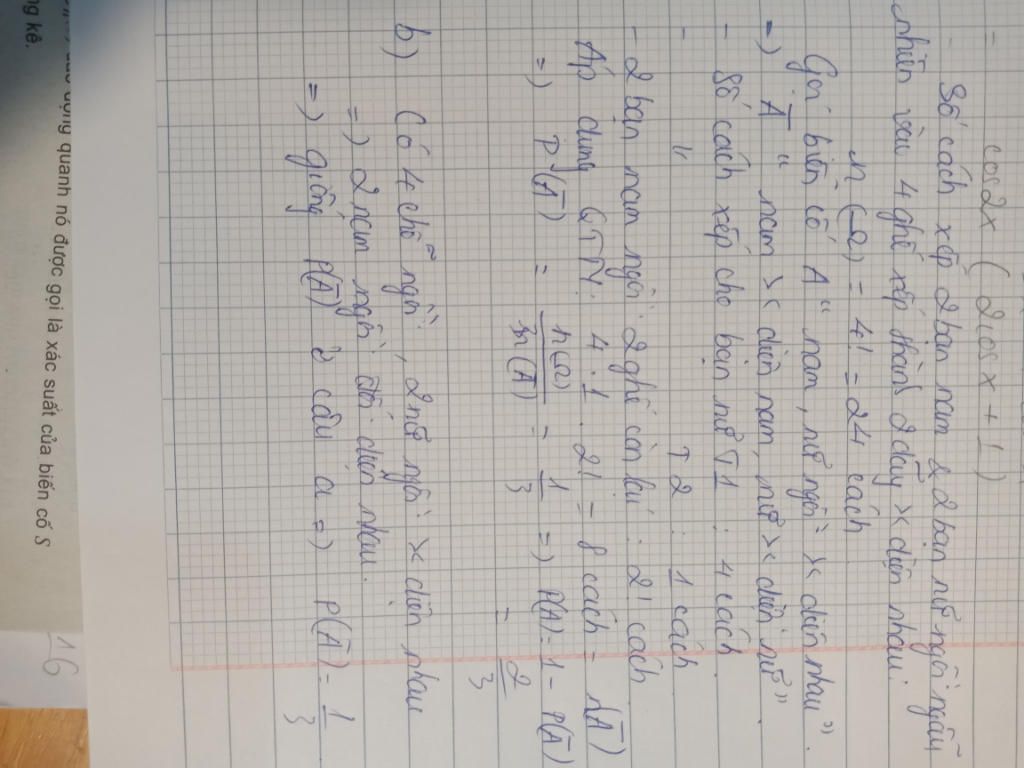 = cos 2x ( 2cos x + 1 )
- Số cách xếp 2 bạn nam & 2 bạn nữ ngồi ngẫu
nhiên vào 4 ghế xếp thành 2 dãy x diện nhau:
n (Ω) = 4! = 24 cách
Gọi biến cố A " nam, nữ ngồi x diện nhau".
=) A̅ " nam x diện nam, nữ x diện nữ"
- Số cách xếp cho bạn nữ T1 : 4 cách
- " T2 : 1 cách
- 2 bạn nam ngồi 2 ghế còn lại : 2! cách
Áp dụng QTN: 4 . 1 . 2! = 8 cách = n(A̅)
=) P(A̅) = n(Ω) / n(A̅) = 1/3 =) P(A) = 1 - P(A̅)
= 2/3
b) Có 4 chỗ ngồi, 2 nữ ngồi x diện nhau
=) 2 nam ngồi đối diện nhau.
=) giống P(A̅) ở câu a =) P(A̅) = 1/3
động quanh nó được gọi là xác suất của biến cố S
ng kê.
16